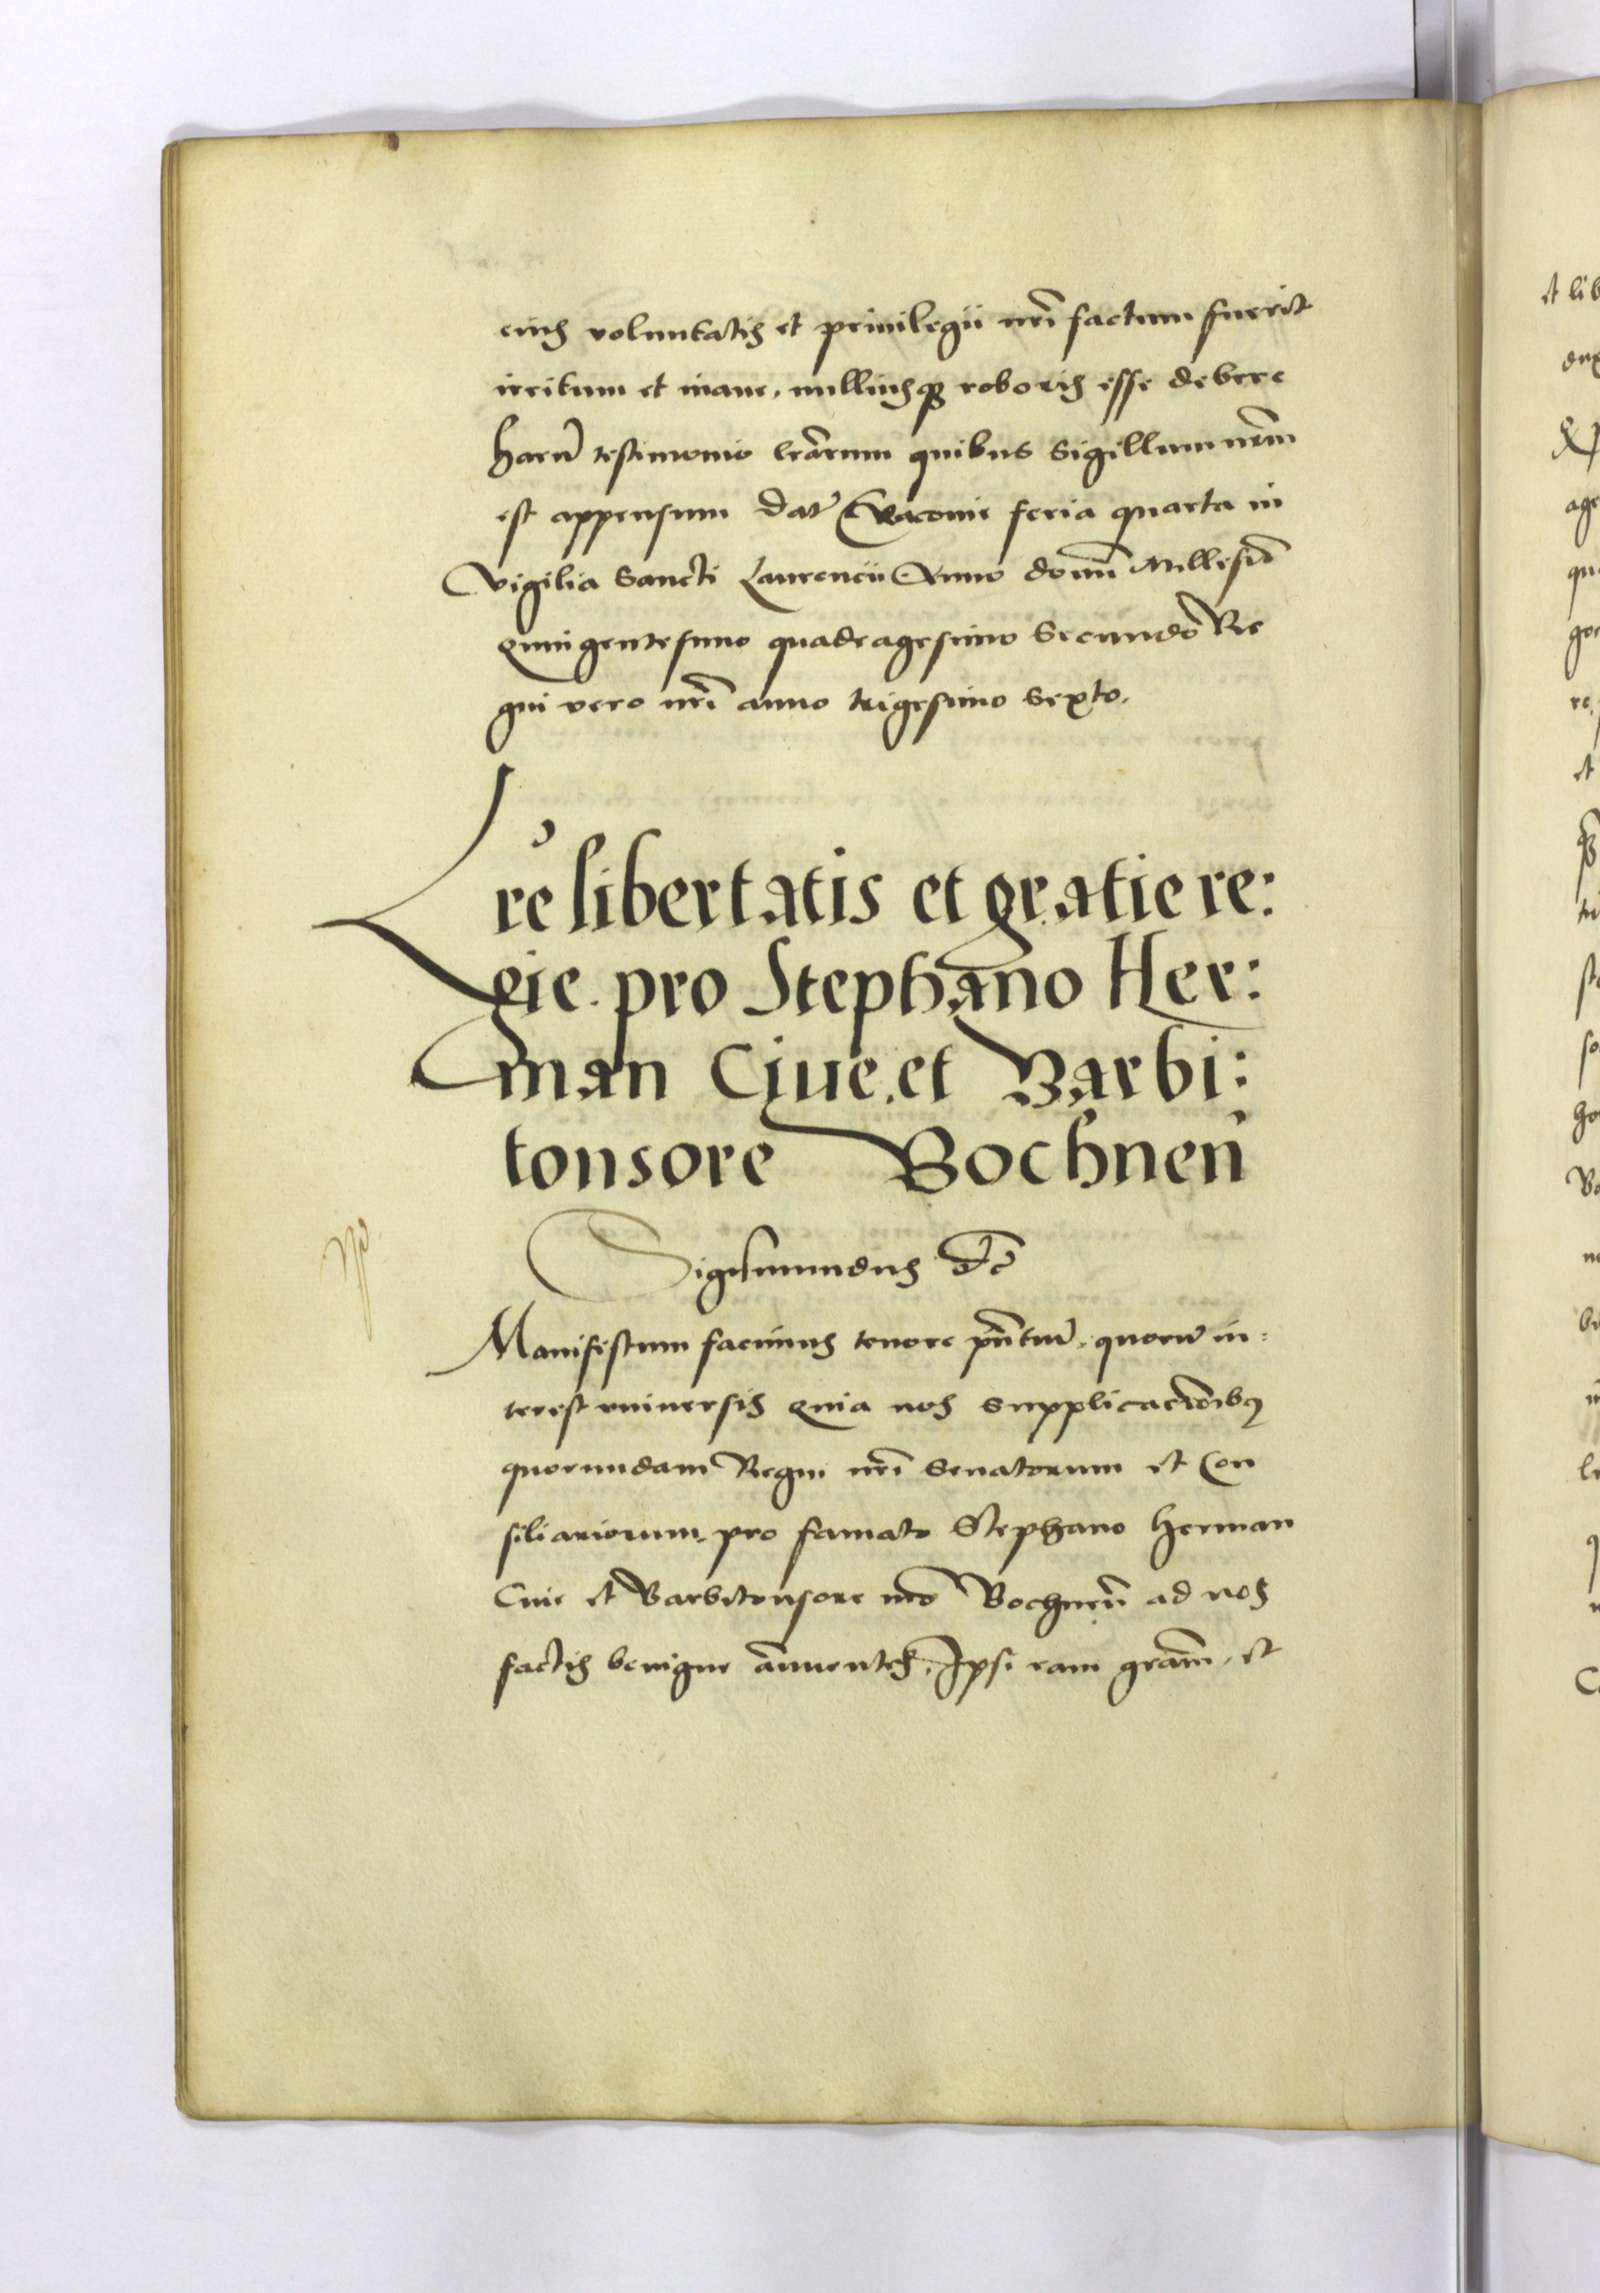 eius voluntatis et priuilegii nr̃i factum fuerit
irritum et inane, nulliusqꝫ roboris esse debere
harũ testimonio lr̃arum quibus Sigillum nrm̃
est appensum Dat̃ Cracovie feria quarta in
Vigilia Sancti Laurencii Anno domĩ Millesiõ
Quingentesimo quadragesimo Secundo Re
gni vero nr̃i anno trigesimo Sexto.
Lr̃e libertatis et gratie re:
gie. pro Stephano Her:
man Ciue. et Barbi:
tonsore Bochneñ
Sigismundus Dẽ
Manifestum facimus tenore pñtiũ, quorũ in:
terest vniuersis Quia nos Supplicacionibꝰ
quorundam Regni nr̃i Senatorum et Con
siliariorum, pro famato Stephano Herman
Ciue et Barbitonsore nr̃o Bochneñ ad nos
factis benigne añuentes, Ipsi eam grãm, et
et lib